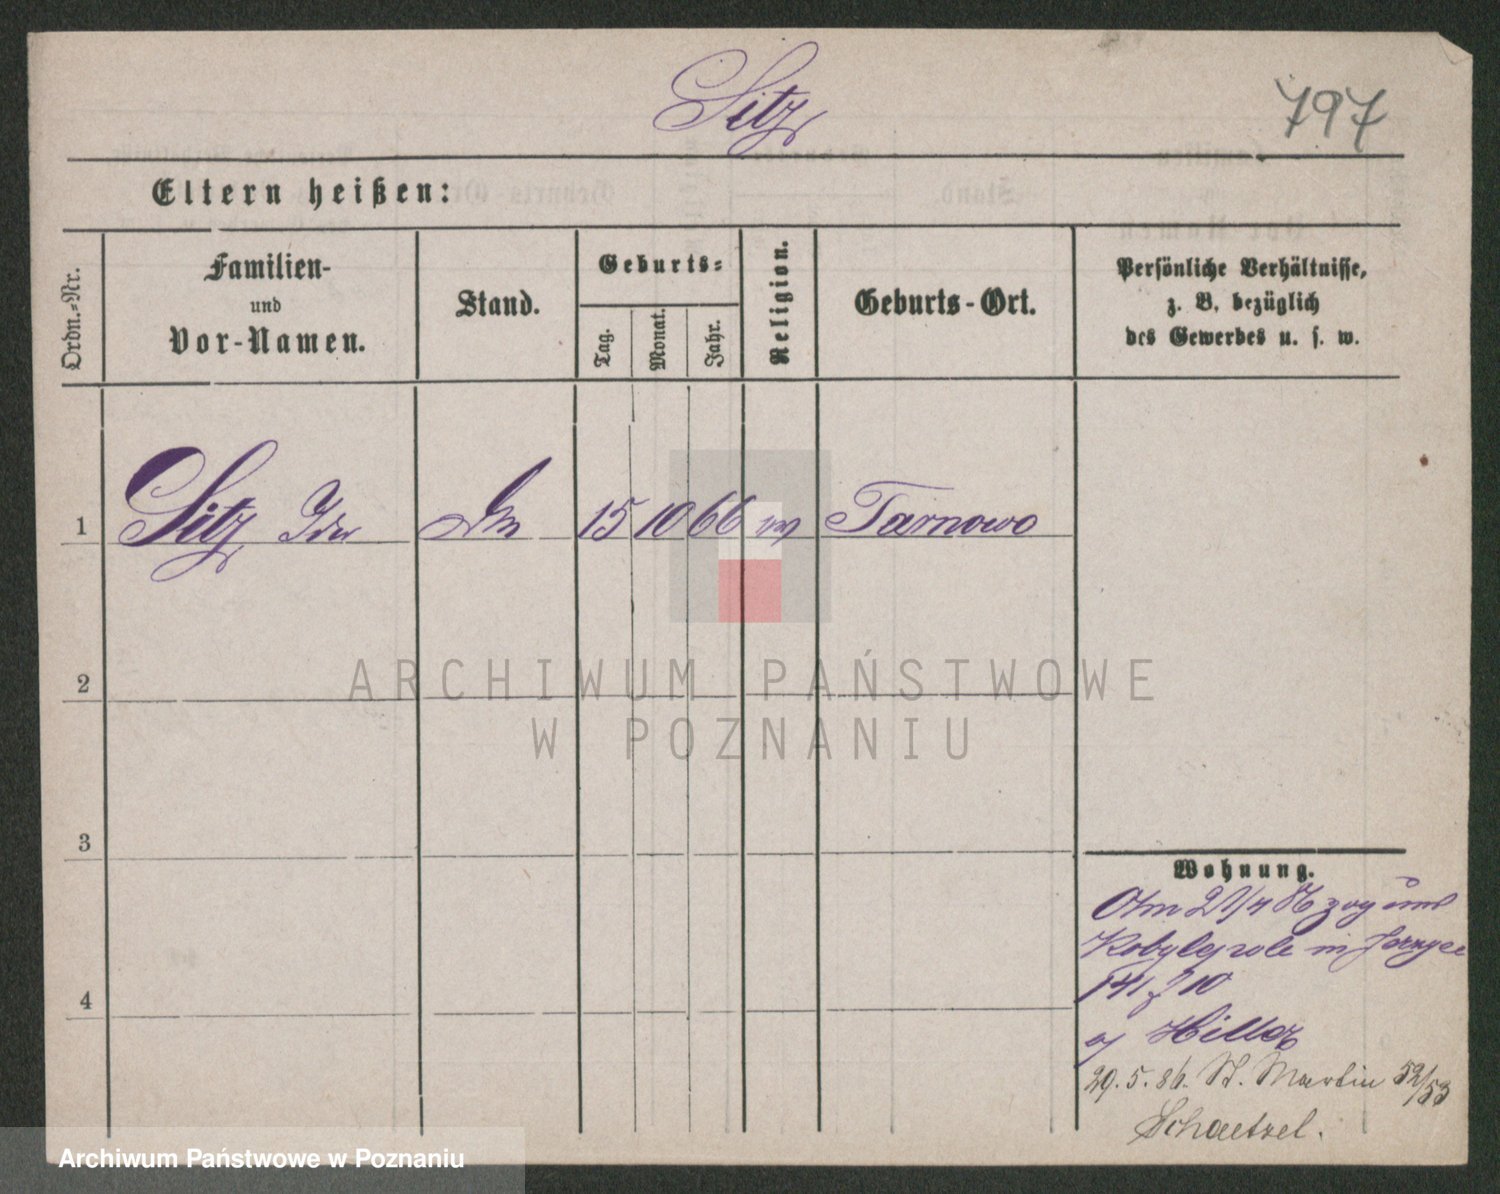 Sitz
797
Eltern heißen:
Ordn.-Nr.
Familien-
und
Vor-Namen.
Stand.
Geburts-
Tag.
Monat.
Jahr.
Religion.
Geburts-Ort.
Persönliche Verhältnisse,
z. B. bezüglich
des Gewerbes u. s. w.
1 Sitz Ida 15 10 66 Tarnowo
2
ARCHIWUM PAŃSTWOWE
W POZNANIU
3
4
Wohnung.
Am 86 zog
in
141 10
Hiller
29.5.86. St. Martin 52/53
Schaetzel.
Archiwum Państwowe w Poznaniu